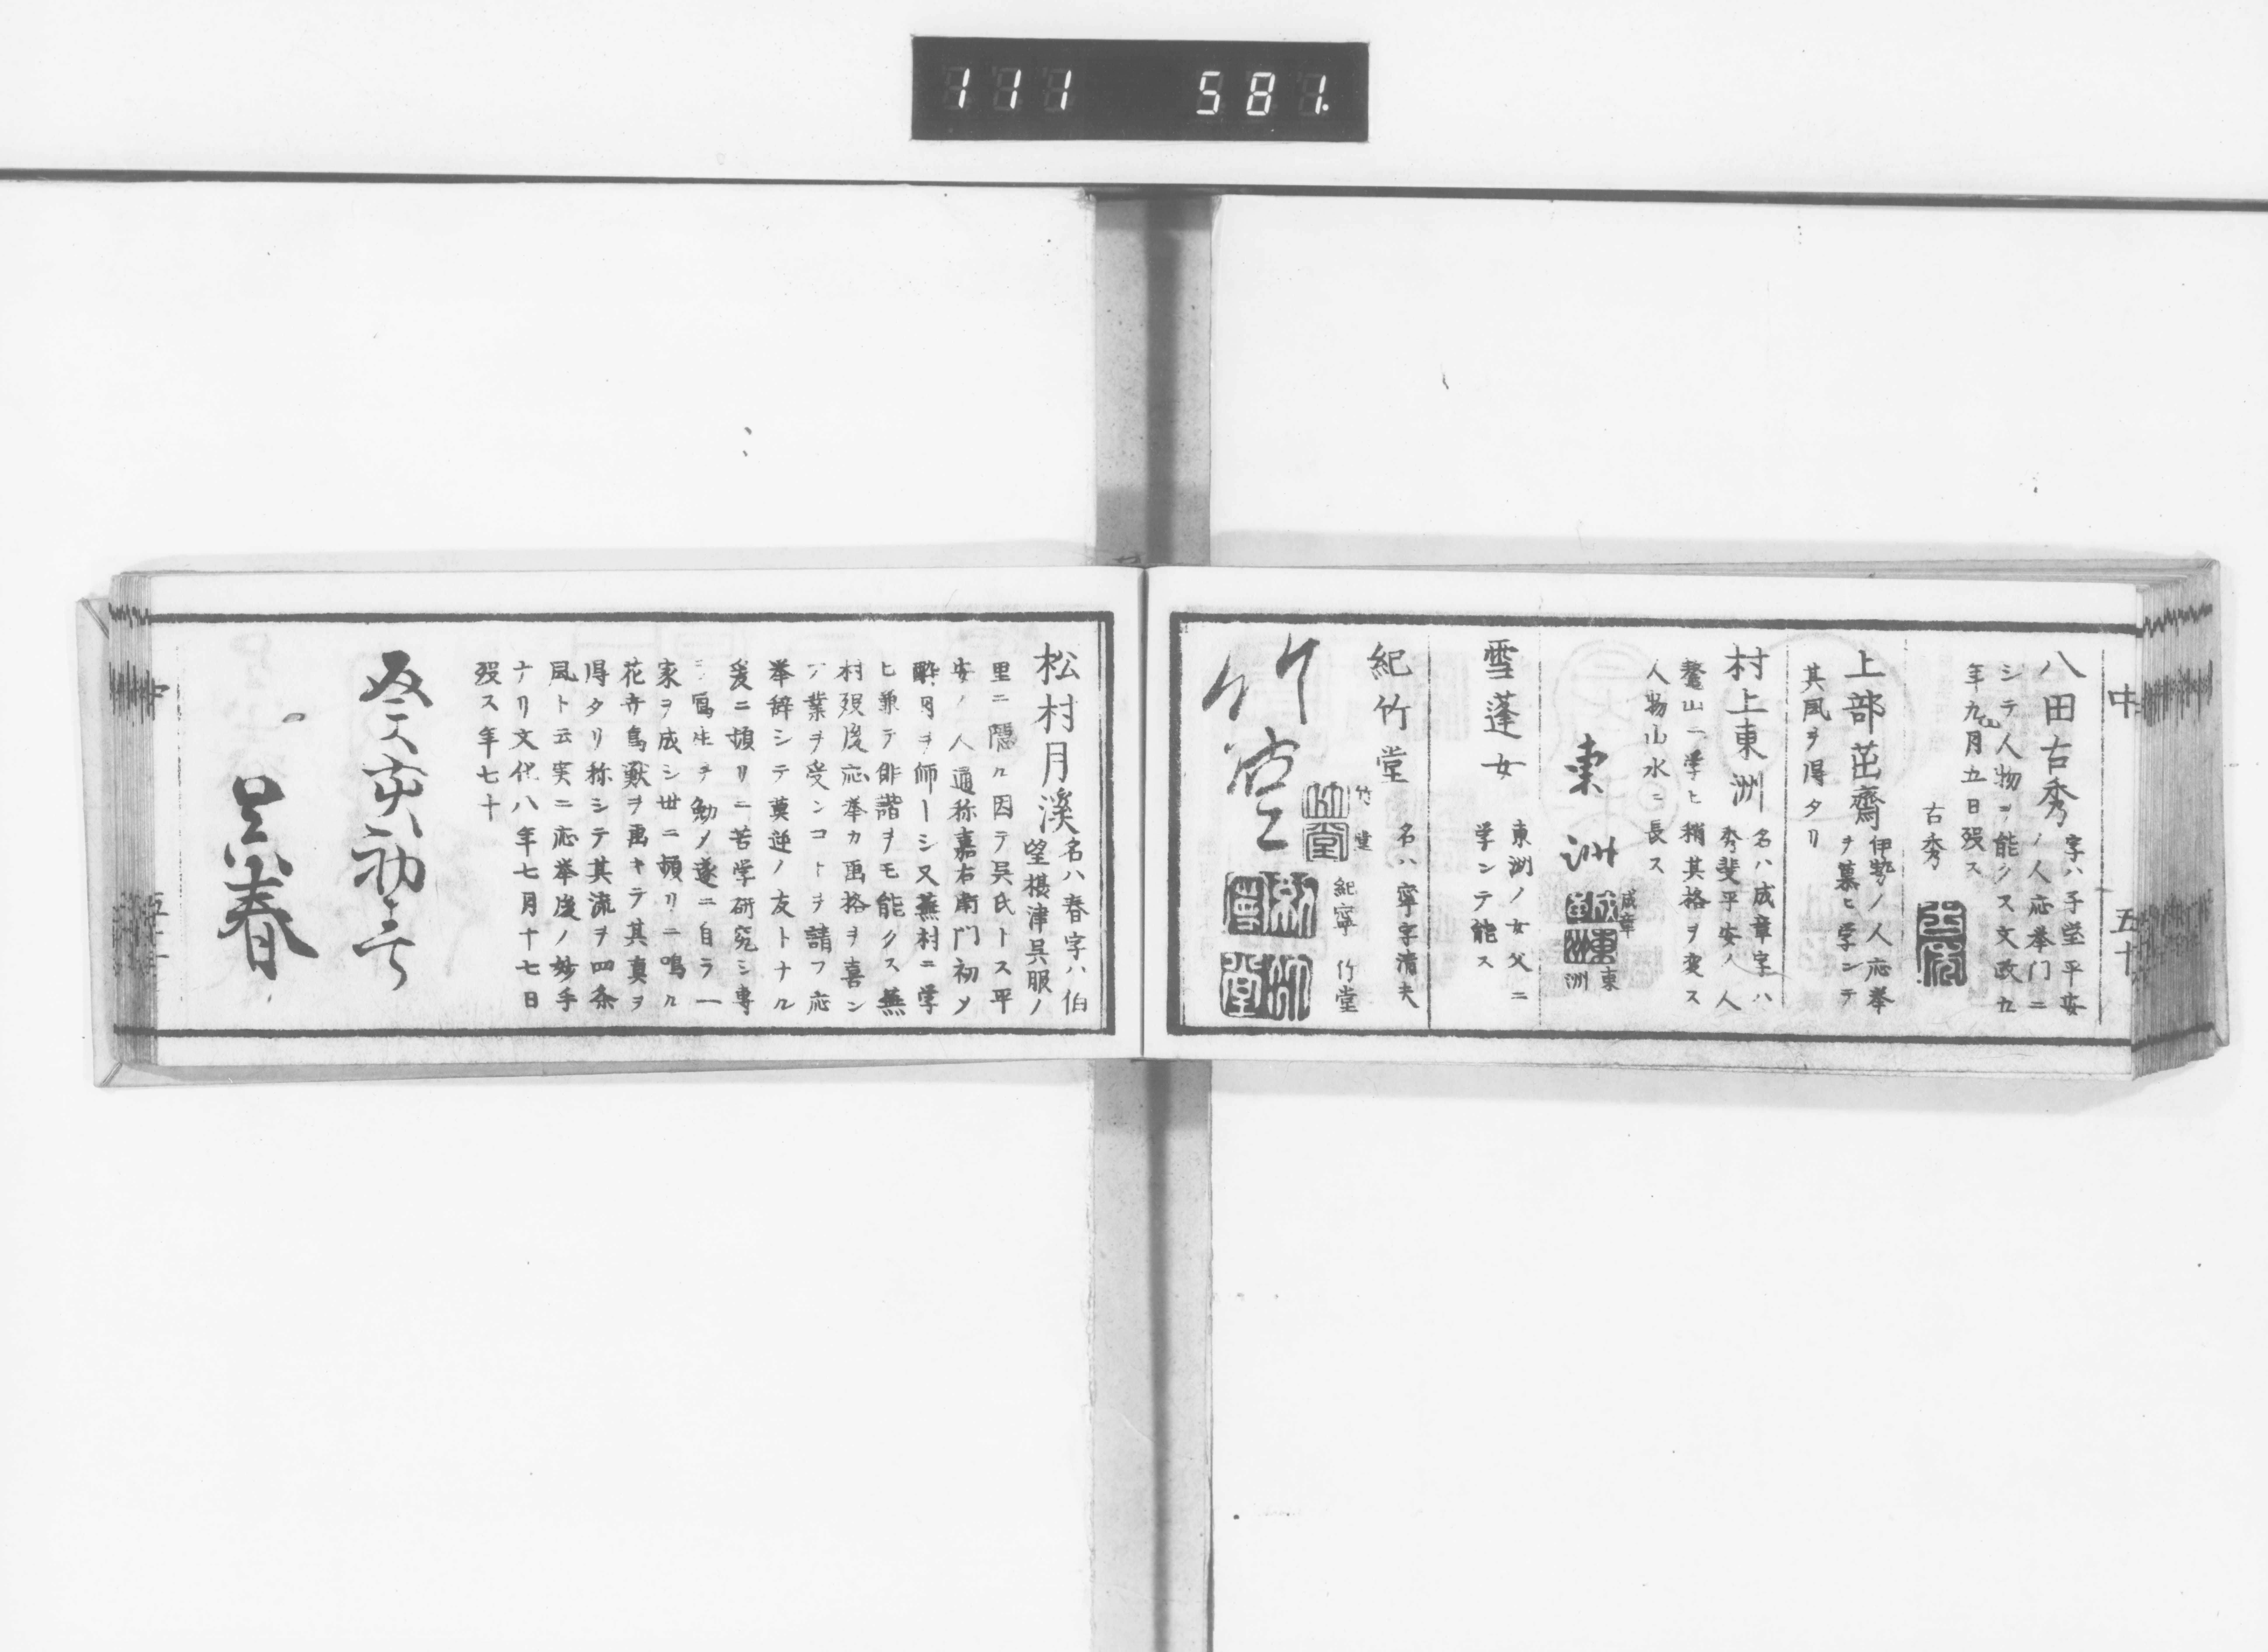 111 581.
中 五十
八田古秀 字ハ子瑩平安
ノ人応挙門ニ
シテ人物ヲ能クス文政五
年九月五日歿ス
古秀
上部茁齋 伊勢ノ人応挙
ヲ慕ヒ学ンテ
其風ヲ得タリ
村上東洲 名ハ成章字ハ
秀斐平安ノ人
鼇山ニ学ヒ稍其格ヲ変ス
人物山水ニ長ス
東洲
成章
東洲
雪蓬女 東洲ノ女父ニ
学ンテ能ス
紀竹堂 名ハ寧字清夫
竹堂
紀寧 竹堂
竹堂
松村月溪 名ハ春字ハ伯
望摂津呉服ノ
里ニ隠ル因テ呉氏トス平
安ノ人通称嘉右衛門初メ
酔月ヲ師トシ又蕪村ニ学
ヒ兼テ俳諧ヲモ能クス蕪
村歿後応挙カ画格ヲ喜ン
テ業ヲ受ンコトヲ請フ応
挙辞シテ莫逆ノ友トナル
爰ニ頻リニ苦学研究シ専
ラ写生ヲ勉メ遂ニ自ラ一
家ヲ成シ世ニ頻リニ鳴ル
花卉鳥獣ヲ画キテ其真ヲ
得タリ称シテ其流ヲ四条
風ト云実ニ応挙後ノ妙手
ナリ文化八年七月十七日
歿ス年七十
呉春